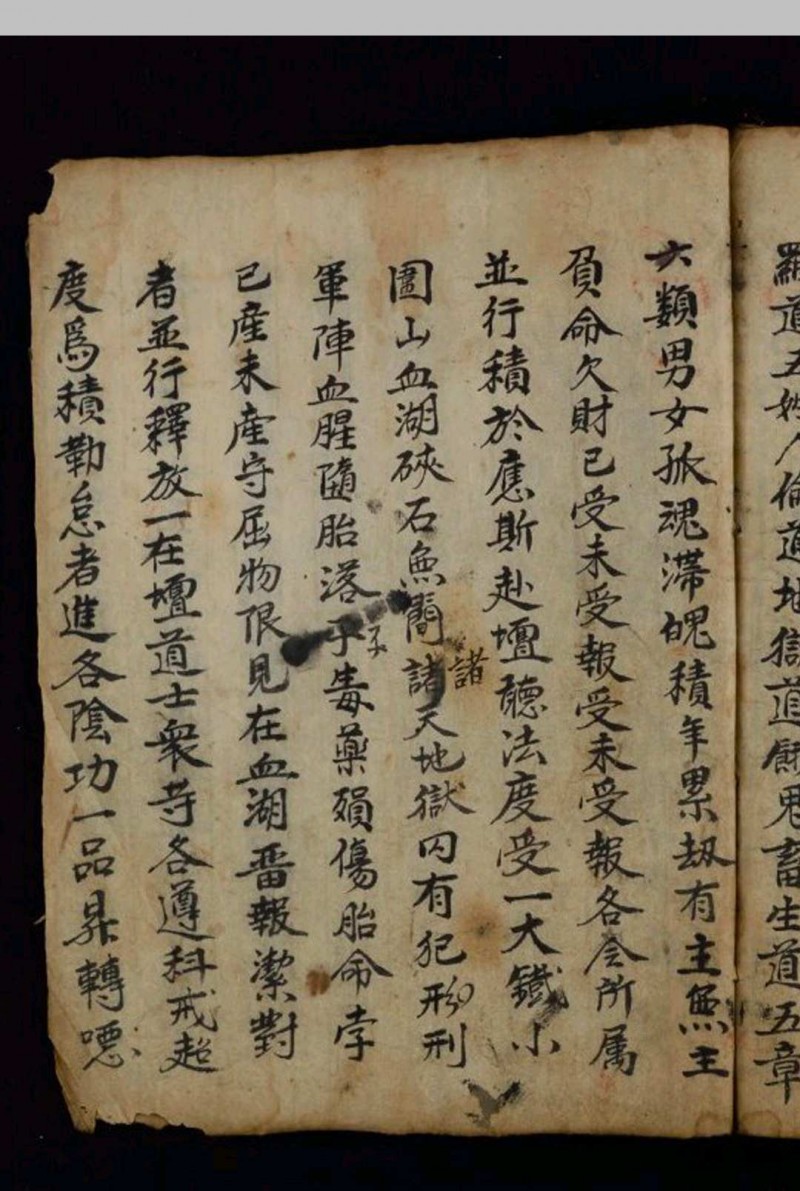 羅道五姓人倫道地獄道餓鬼畜生道五章
六類男女孤魂滯魄積年累劫有主無主
負命欠財已受未受報受未受報各令所属
並行積於應斯赴壇聽法度受一大鐵小
圍山血湖硤石魚閣諸天地獄囚有犯刑
諸
軍陣血腥隨胎落子毒藥殞傷胎命孛
子
已產未產守屈物恨見在血湖畨報潔對
者並行釋放一在壇道士衆等各遵科戒超
度爲積勤怠者進各陰功一品昇轉